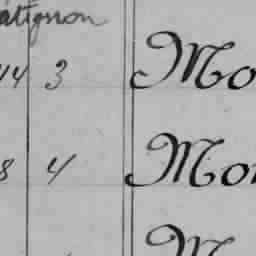 atignon
44 3 Mo
8 4 Mon
M